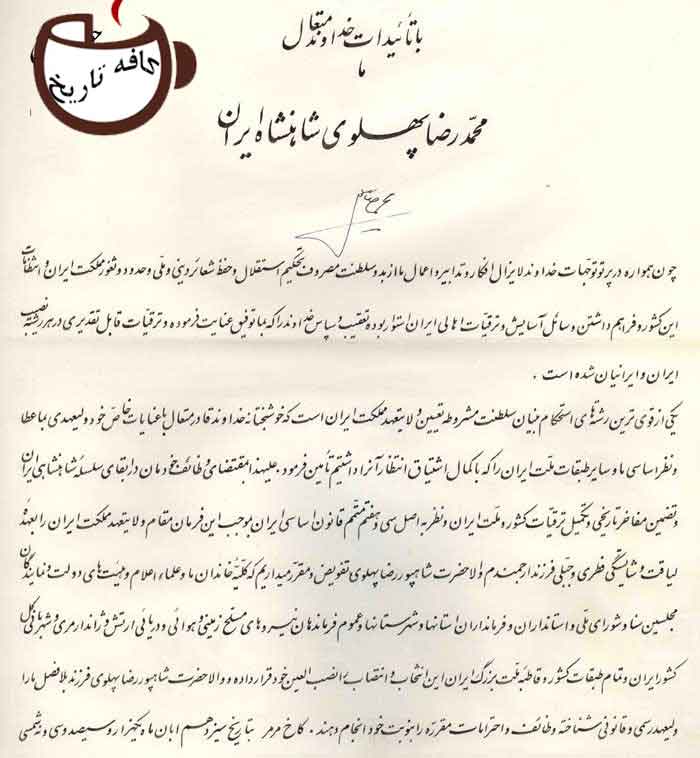 کافه تاریخ
با تأئیدات خداوند متعال
ما
محمد رضا پهلوی شاهنشاه ایران
چون همواره در پرتو توجهات خداوند لایزال افکار و تدابیر و اعمال ما از بدو سلطنت مصروف تحکیم استقلال و حفظ شعائر دینی و ملی و حدود و ثغور مملکت ایران و انتظامات
این کشور و فراهم داشتن وسائل آسایش و ترقیات اهالی ایران استوار بوده تعقیب و سپاس خداوند را که بما توفیق عنایت فرموده و ترقیات قابل تقدیری در هر رشته نصیب
ایران و ایرانیان شده است .
یکی از قوی ترین رشته های استحکام مبنای سلطنت مشروطه تعیین ولایتعهد مملکت ایران است که خوشبختانه خداوند قادر متعال با عنایات خاص خود ولیعهدی بما عطا
و نظر اساسی ما و سایر طبقات ملت ایران را که با کمال اشتیاق انتظار آنرا داشتیم تأمین فرمود . علیهذا بمقتضای وظائف خود مان در ابقای سلسله شاهنشاهی ایران
و تضمین مفاخر تاریخی و تکمیل ترقیات کشور و ملت ایران و نظر به اصل سی و هفتم متمم قانون اساسی ایران بموجب این فرمان مقام ولایتعهد مملکت ایران را بعهده
لیاقت و شایستگی فطری و جبلی فرزند ارجمندم والاحضرت شاهپور رضا پهلوی تفویض و مقرر میداریم که کلیه خاندان ما و علماء اعلام و هیئت های دولت و نمایندگان
مجلسین سنا و شورای ملی و استانداران و فرمانداران استانها و شهرستانها و عموم فرماندهان نیروهای مسلح زمینی و هوائی و دریائی ارتش و ژاندارمری و شهربانی کل
کشور ایران و تمام طبقات کشور و قاطبه ملت بزرگ ایران این انتخاب و انتصاب را نصب العین خود قرار داده و والاحضرت شاهپور رضا پهلوی فرزند بلافصل ما را
ولیعهد رسمی و قانونی شناخته وظائف و احترامات مقرره را بنوبت خود انجام دهند . کاخ مرمر بتاریخ سیزدهم ابان ماه یکهزار و سیصد و سی و نه شمسی